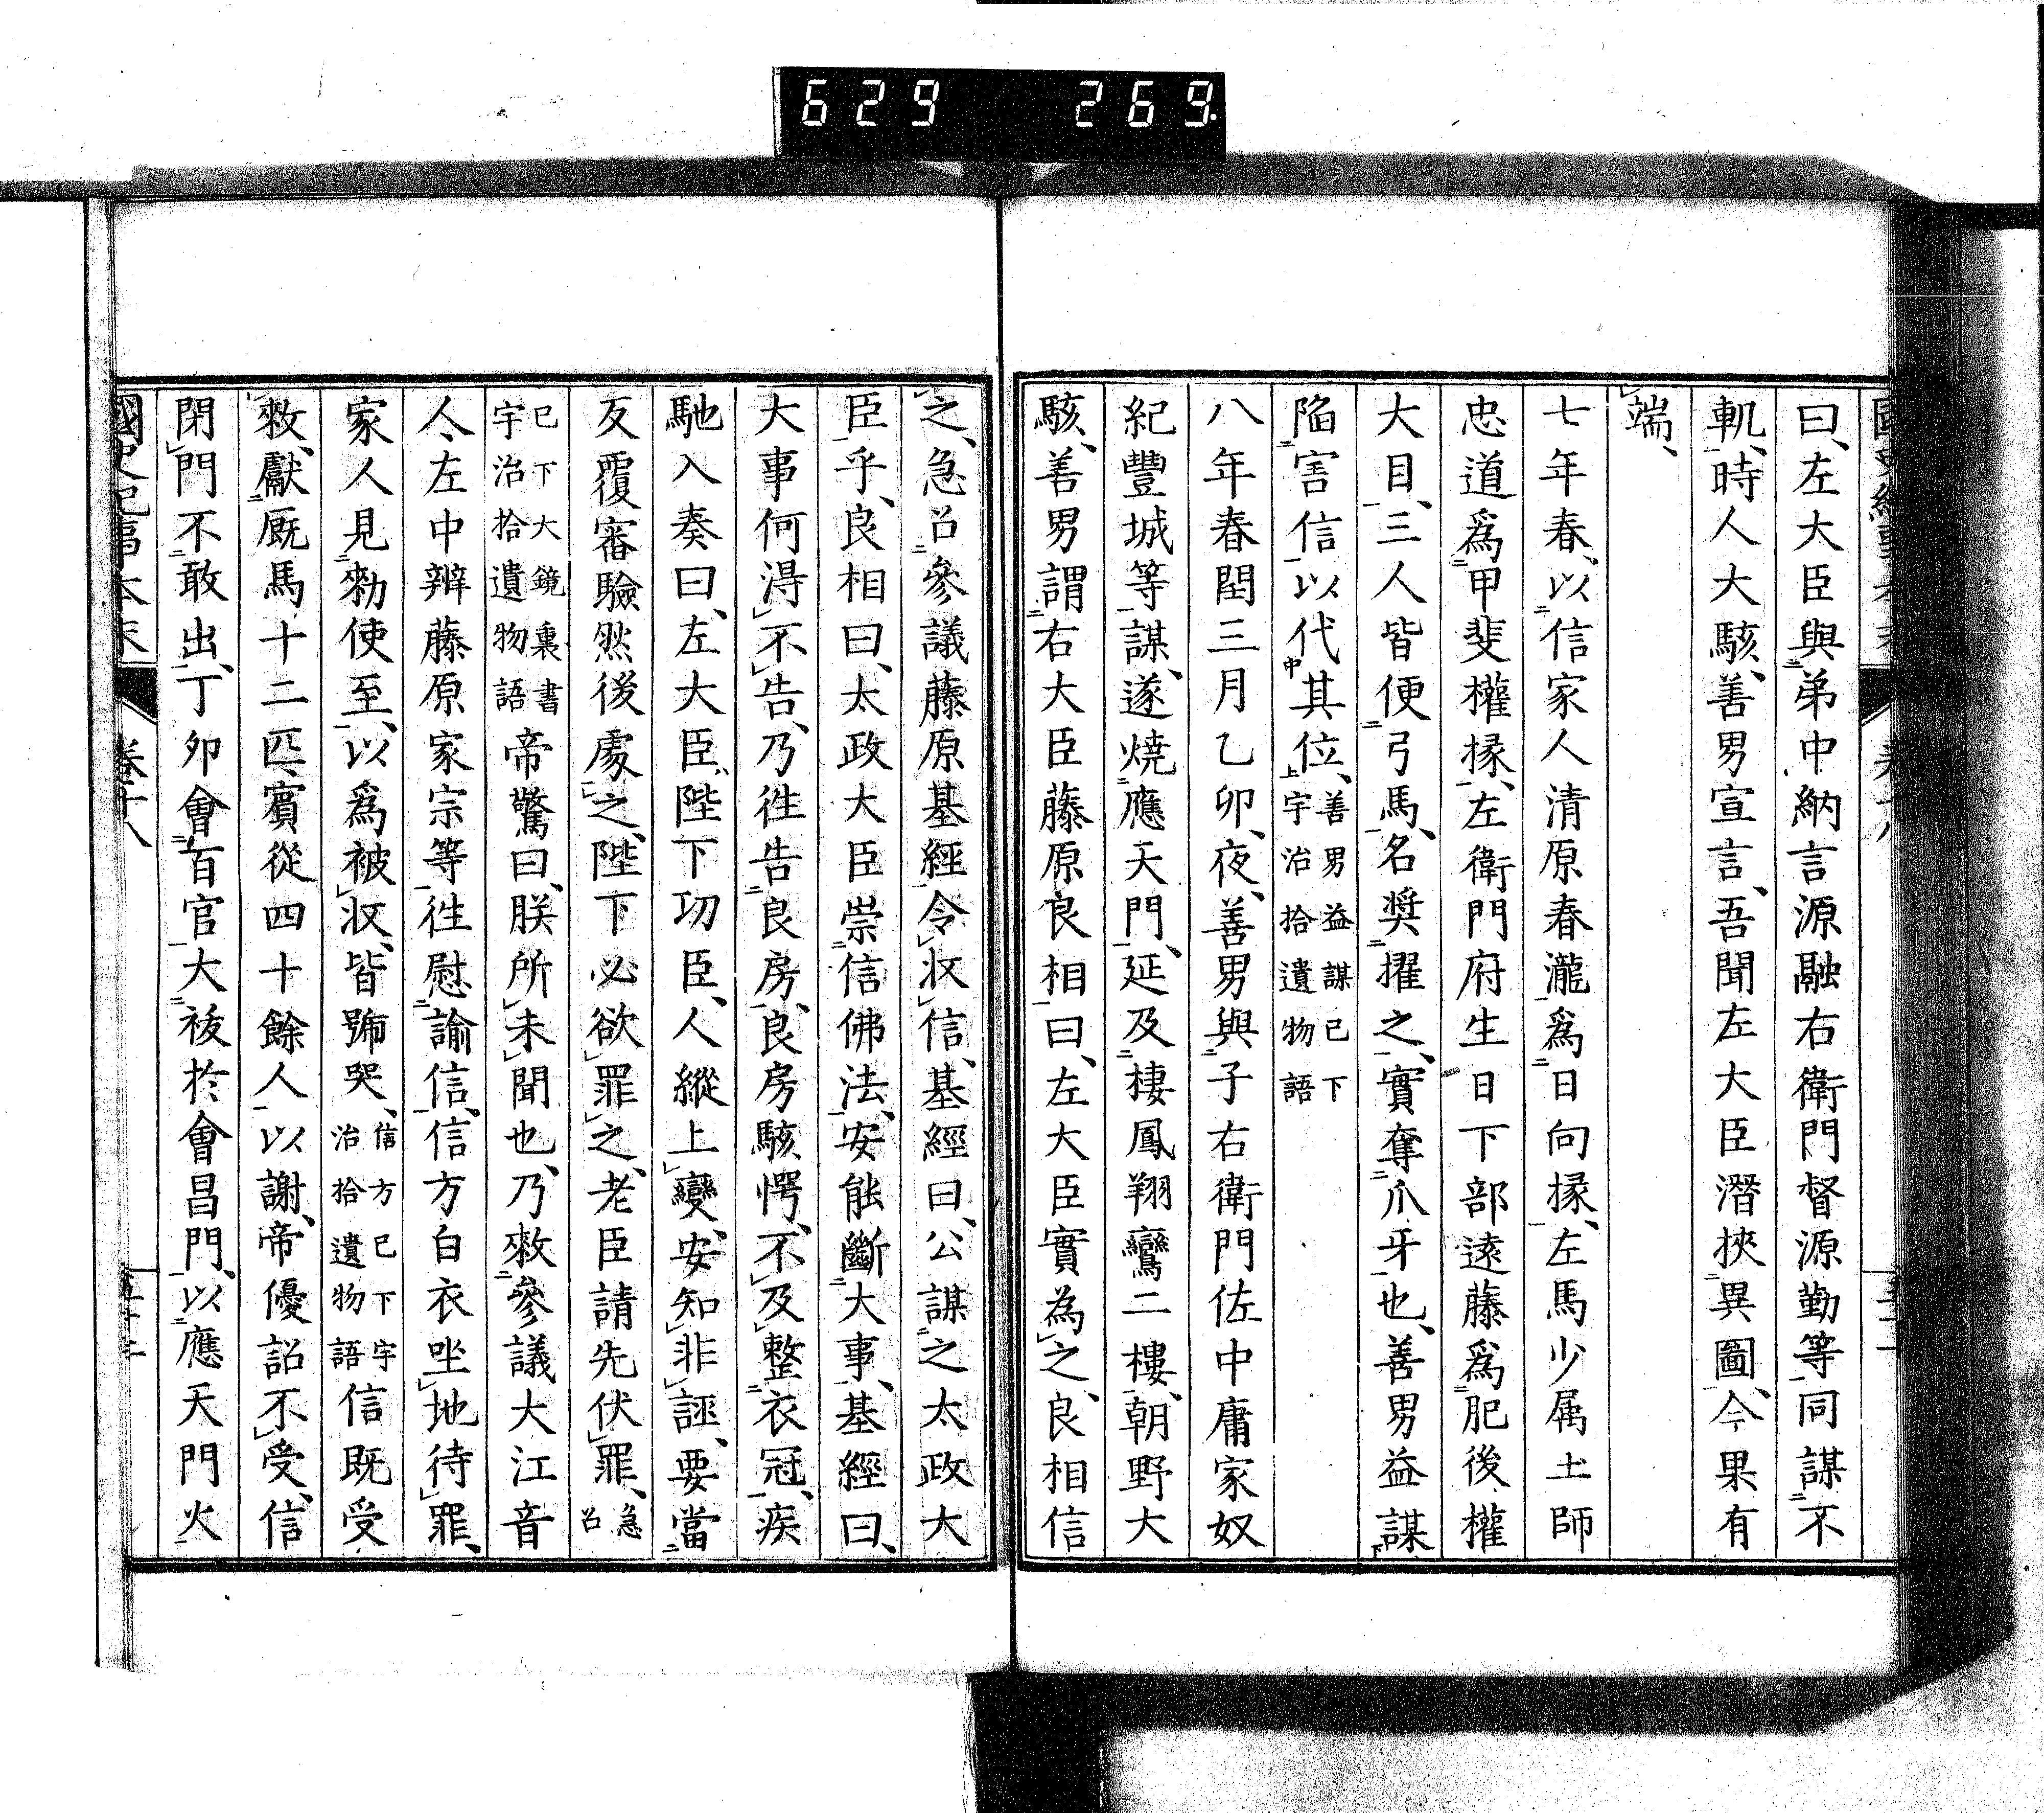 629 269
曰、左大臣與弟中納言源融右衛門督源勤等同謀不
軌、時人大駭、善男宣言、吾聞左大臣潛挾異圖、今果有
端、
七年春、以信家人清原春瀧爲日向掾、左馬少属土師
忠道爲甲斐權掾、左衛門府生日下部遠藤爲肥後權
大目、三人皆便弓馬、名奬擢之、實奪爪牙也、善男益謀
陷害信以代其位、善男益謀已下
宇治拾遺物語
八年春閏三月乙卯、夜、善男與子右衛門佐中庸家奴
紀豐城等謀、遂燒應天門、延及棲鳳翔鸞二樓、朝野大
駭、善男謂右大臣藤原良相曰、左大臣實為之、良相信
之、急召參議藤原基經令收信、基經曰、公謀之太政大
臣乎、良相曰、太政大臣崇信佛法、安能斷大事、基經曰、
大事何得不告、乃徃告良房、良房駭愕、不及整衣冠、疾
馳入奏曰、左大臣、陛下功臣、人縱上變、安知非誣、要當
反覆審驗然後處之、陛下必欲罪之、老臣請先伏罪、急
召
已下大鏡裏書
宇治拾遺物語帝驚曰、朕所未聞也、乃敕參議大江音
人、左中辨藤原家宗等徃慰諭信、信方白衣坐地待罪、
家人見勅使至、以爲被收、皆號哭、信方已下宇
治拾遺物語信既受
敕、獻厩馬十二匹、賓從四十餘人以謝、帝優詔不受、信
閉門不敢出、丁卯會百官大祓於會昌門、以應天門火
國史紀事本末 卷十八